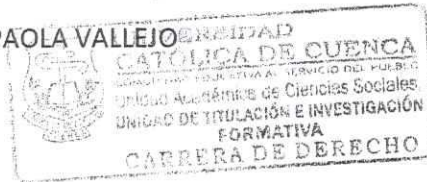 PAOLA VALLEJO
UNIVERSIDAD
CATÓLICA DE CUENCA
COMUNIDAD EDUCATIVA AL SERVICIO DEL PUEBLO
Unidad Académica de Ciencias Sociales
UNIDAD DE TITULACIÓN E INVESTIGACIÓN
FORMATIVA
CARRERA DE DERECHO